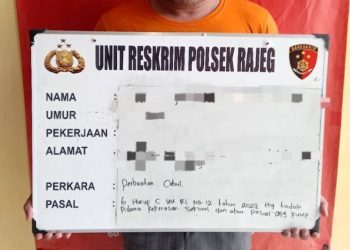 UNIT RESKRIM POLSEK RAJEG
NAMA :
UMUR :
PEKERJAAN :
ALAMAT :
PERKARA : Perbuatan Cabul
PASAL : 6 Huruf C UU RI No.12 tahun 2022 ttg tindak
Pidana kekerasan seksual dan atau pasal 289 KUHP